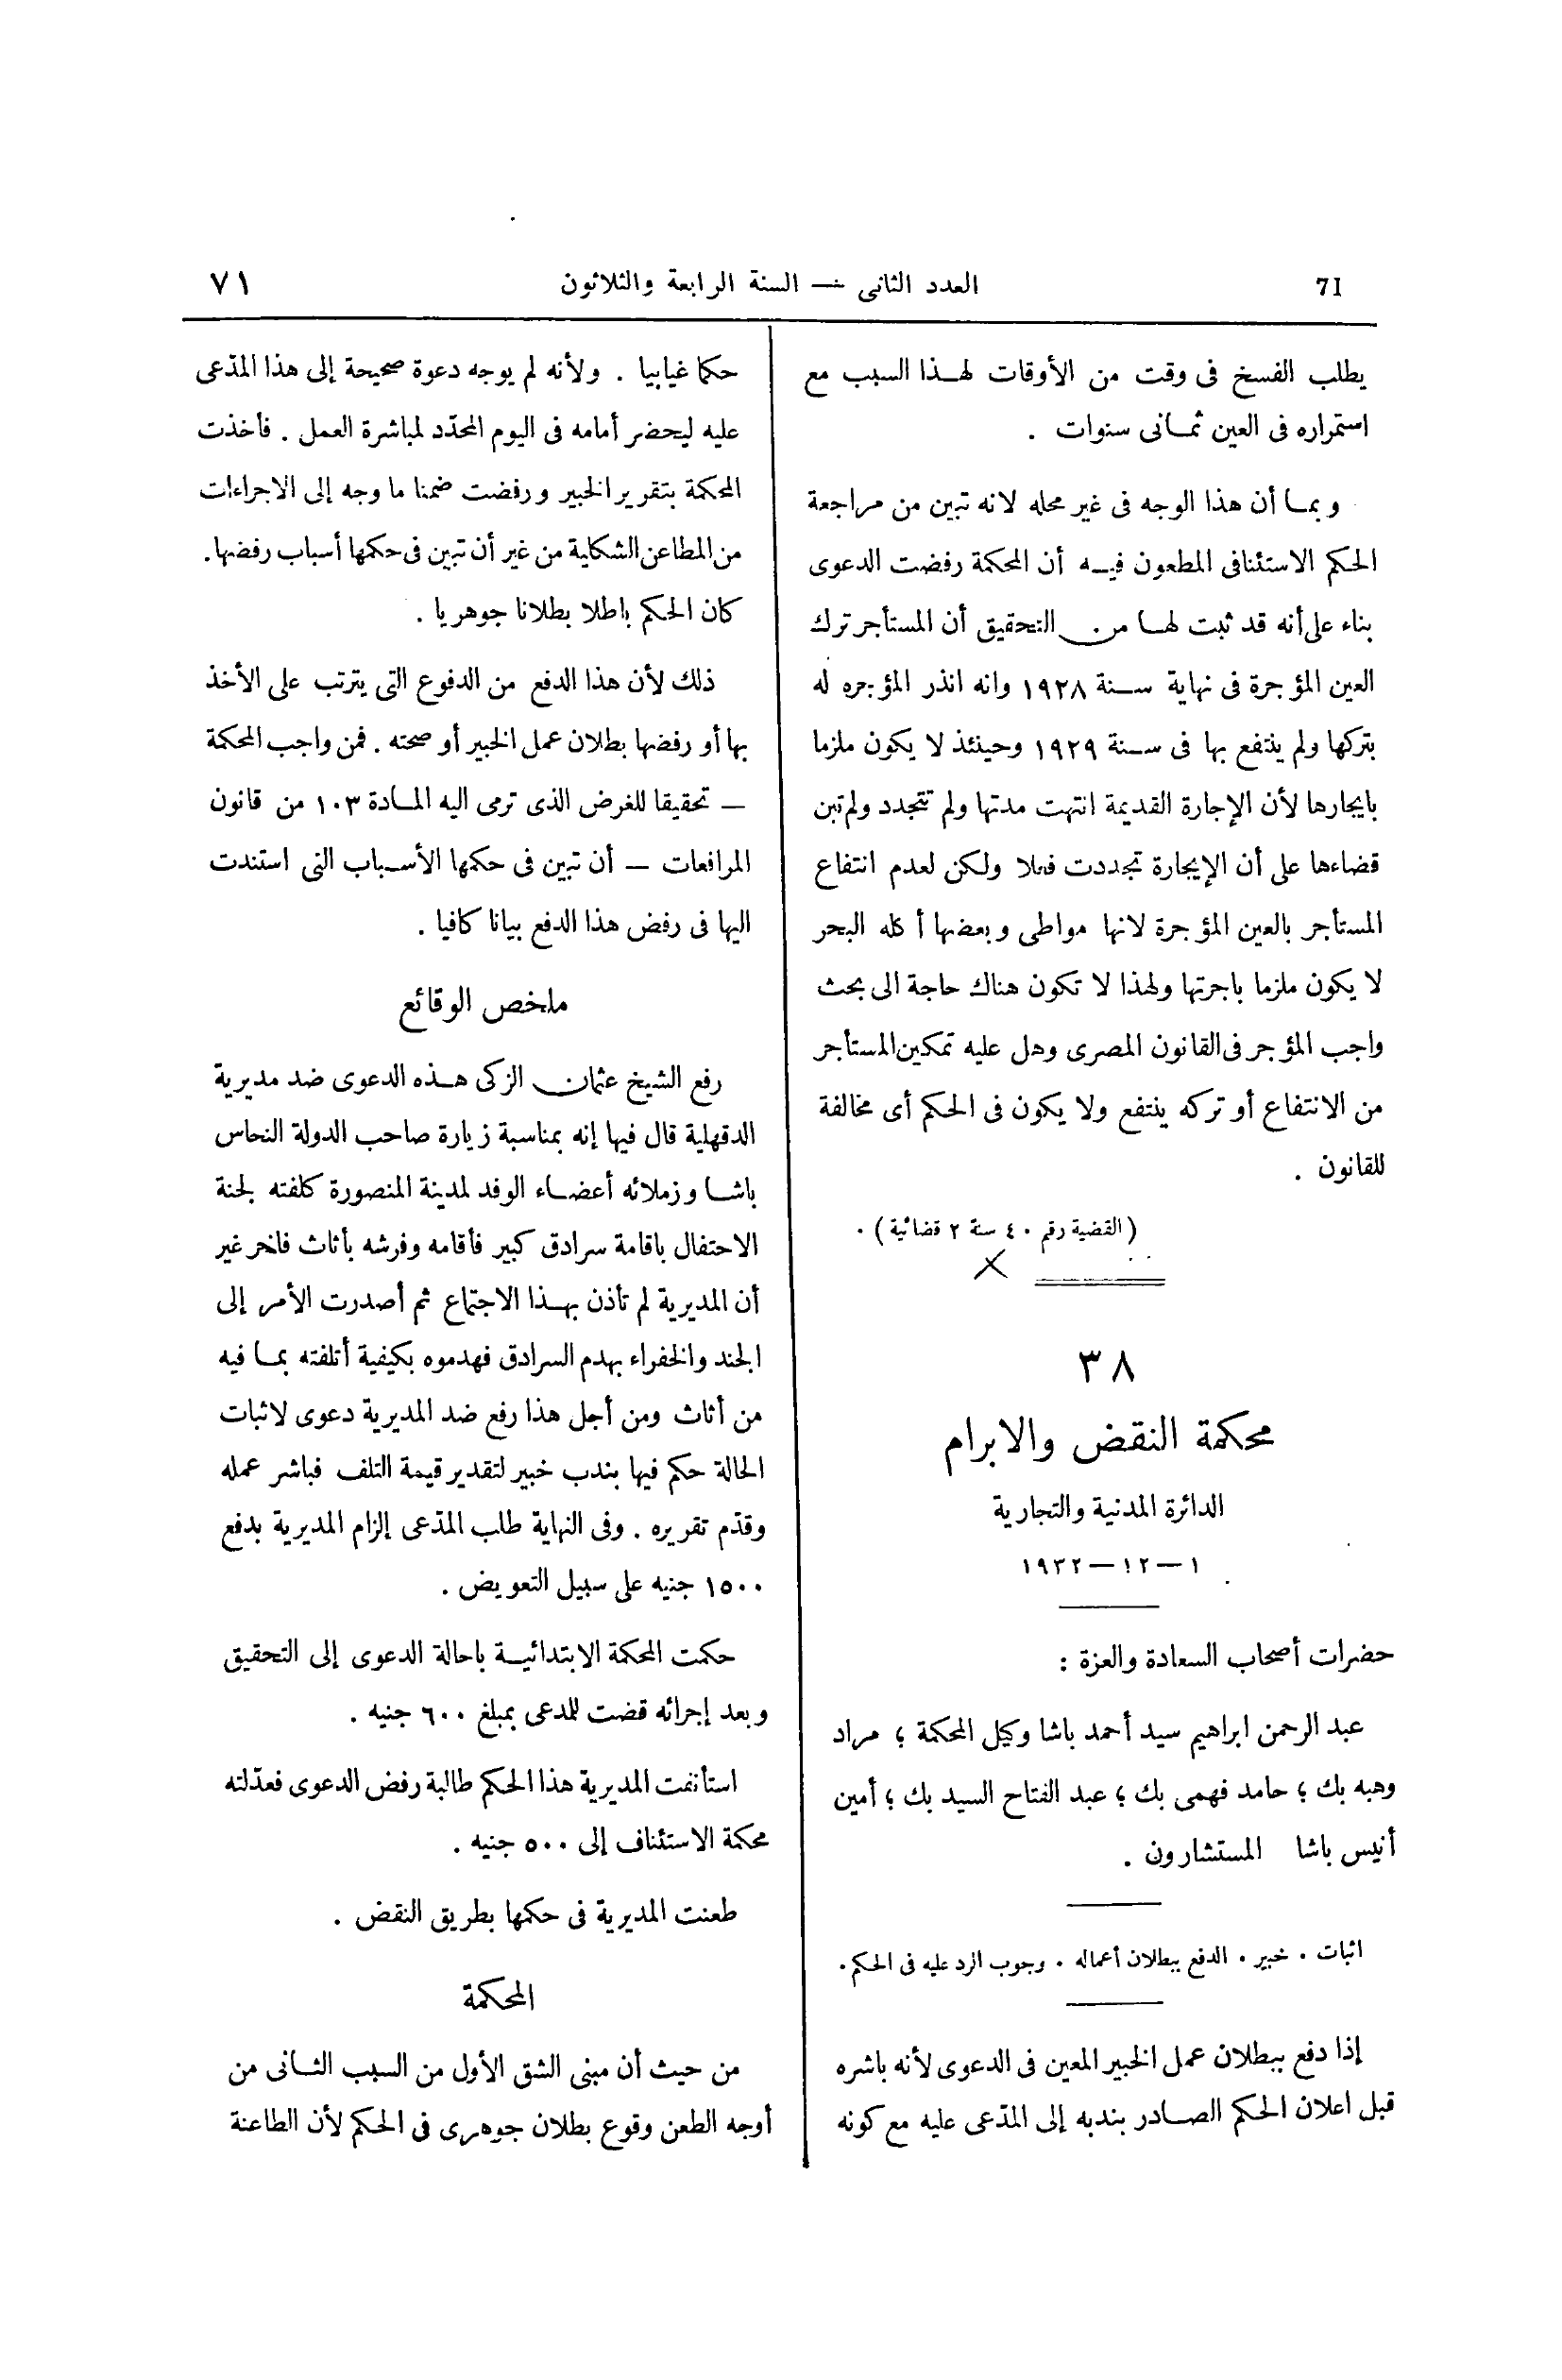 71
العدد الثانى — السنة الرابعة والثلاثون
٧١
يطلب الفسخ فى وقت من الأوقات لهذا السبب مع
استمراره فى العين ثمانى سنوات .
وبما أن هذا الوجه فى غير محله لانه تبين من مراجعة
الحكم الاستئنافى المطعون فيه أن المحكمة رفضت الدعوى
بناء على أنه قد ثبت لها من التحقيق أن المستأجر ترك
العين المؤجرة فى نهاية سنة ١٩٢٨ وانه انذر المؤجره له
بتركها ولم ينتفع بها فى سنة ١٩٢٩ وحينئذ لا يكون ملزما
بايجارها لأن الإجارة القديمة انتهت مدتها ولم تتجدد ولم تبن
قضاءها على أن الإيجارة تجددت فعلا ولكن لعدم انتفاع
المستأجر بالعين المؤجرة لانها مواطى وبعضها أكله البحر
لا يكون ملزما باجرتها ولهذا لا تكون هناك حاجة الى بحث
واجب المؤجر فى القانون المصرى وهل عليه تمكين المستأجر
من الانتفاع أو تركه ينتفع ولا يكون فى الحكم أى مخالفة
للقانون .
( القضية رقم ٤٠ سنة ٢ قضائية ) .
٣٨
محكمة النقض والابرام
الدائرة المدنية والتجارية
١ — ١٢ — ١٩٣٢
حضرات أصحاب السعادة والعزة :
عبد الرحمن ابراهيم سيد أحمد باشا وكيل المحكمة ؛ مراد
وهبه بك ؛ حامد فهمى بك ؛ عبد الفتاح السيد بك ؛ أمين
أنيس باشا المستشارون .
اثبات . خبير . الدفع ببطلان أعماله . وجوب الرد عليه فى الحكم .
إذا دفع ببطلان عمل الخبير المعين فى الدعوى لأنه باشره
قبل اعلان الحكم الصادر بندبه إلى المدّعى عليه مع كونه
حكما غيابيا . ولأنه لم يوجه دعوة صحيحة إلى هذا المدّعى
عليه ليحضر أمامه فى اليوم المحدّد لمباشرة العمل . فأخذت
المحكمة بتقرير الخبير ورفضت ضمنا ما وجه إلى الاجراءات
من المطاعن الشكلية من غير أن تبين فى حكمها أسباب رفضها .
كان الحكم باطلا بطلانا جوهريا .
ذلك لأن هذا الدفع من الدفوع التى يترتب على الأخذ
بها أو رفضها بطلان عمل الخبير أو صحته . فمن واجب المحكمة
— تحقيقا للغرض الذى ترمى اليه المادة ١٠٣ من قانون
المرافعات — أن تبين فى حكمها الأسباب التى استندت
اليها فى رفض هذا الدفع بيانا كافيا .
ملخص الوقائع
رفع الشيخ عثمان الزكى هذه الدعوى ضد مديرية
الدقهلية قال فيها إنه بمناسبة زيارة صاحب الدولة النحاس
باشا وزملائه أعضاء الوفد لمدينة المنصورة كلفته لجنة
الاحتفال باقامة سرادق كبير فأقامه وفرشه بأثاث فاخر غير
أن المديرية لم تأذن بهذا الاجتماع ثم أصدرت الأمر إلى
الجند والخفراء بهدم السرادق فهدموه بكيفية أتلفته بما فيه
من أثاث ومن أجل هذا رفع ضد المديرية دعوى لاثبات
الحالة حكم فيها بندب خبير لتقدير قيمة التلف فباشر عمله
وقدّم تقريره . وفى النهاية طلب المدّعى إلزام المديرية بدفع
١٥٠٠ جنيه على سبيل التعويض .
حكمت المحكمة الابتدائية باحالة الدعوى إلى التحقيق
وبعد إجرائه قضت للمدعى بمبلغ ٦٠٠ جنيه .
استأنفت المديرية هذا الحكم طالبة رفض الدعوى فعدّلته
محكمة الاستئناف إلى ٥٠٠ جنيه .
طعنت المديرية فى حكمها بطريق النقض .
المحكمة
من حيث أن مبنى الشق الأول من السبب الثانى من
أوجه الطعن وقوع بطلان جوهرى فى الحكم لأن الطاعنة